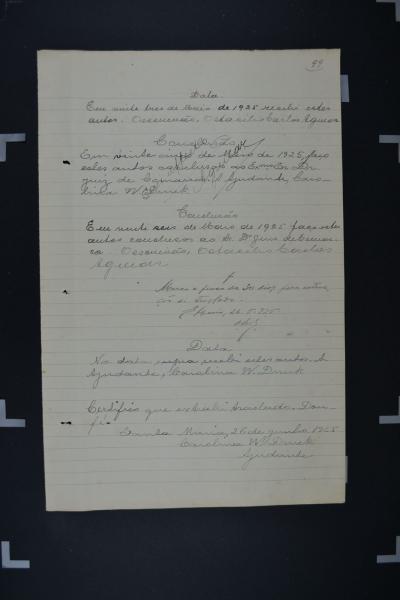 99
Data
Em vinte tres de Maio de 1925 recebi estes
autos. O escrivão, Octacilio Carlos Aguiar
Conclusão
Em vinte de Maio de 1925, faço
estes autos conclusos ao Ex
Juiz de Comarca. A Ajudante, Caro-
lina W. Druck
Conclusão
Em vinte seis de Maio de 1925 faço estes
autos conclusos ao Dr. Juiz de Comar-
ca. O escrivão, Octacilio Carlos
Aguiar
Marco o prazo de 30 dias para
ção do
S. Maria, 26-5-925
Data
Na data supra recebi estes autos. A
Ajudante, Carolina W. Druck
Certifico que extrahi traslado. Dou
fé.
Santa Maria, 26 de junho 1925
Carolina W. Druck
Ajudante